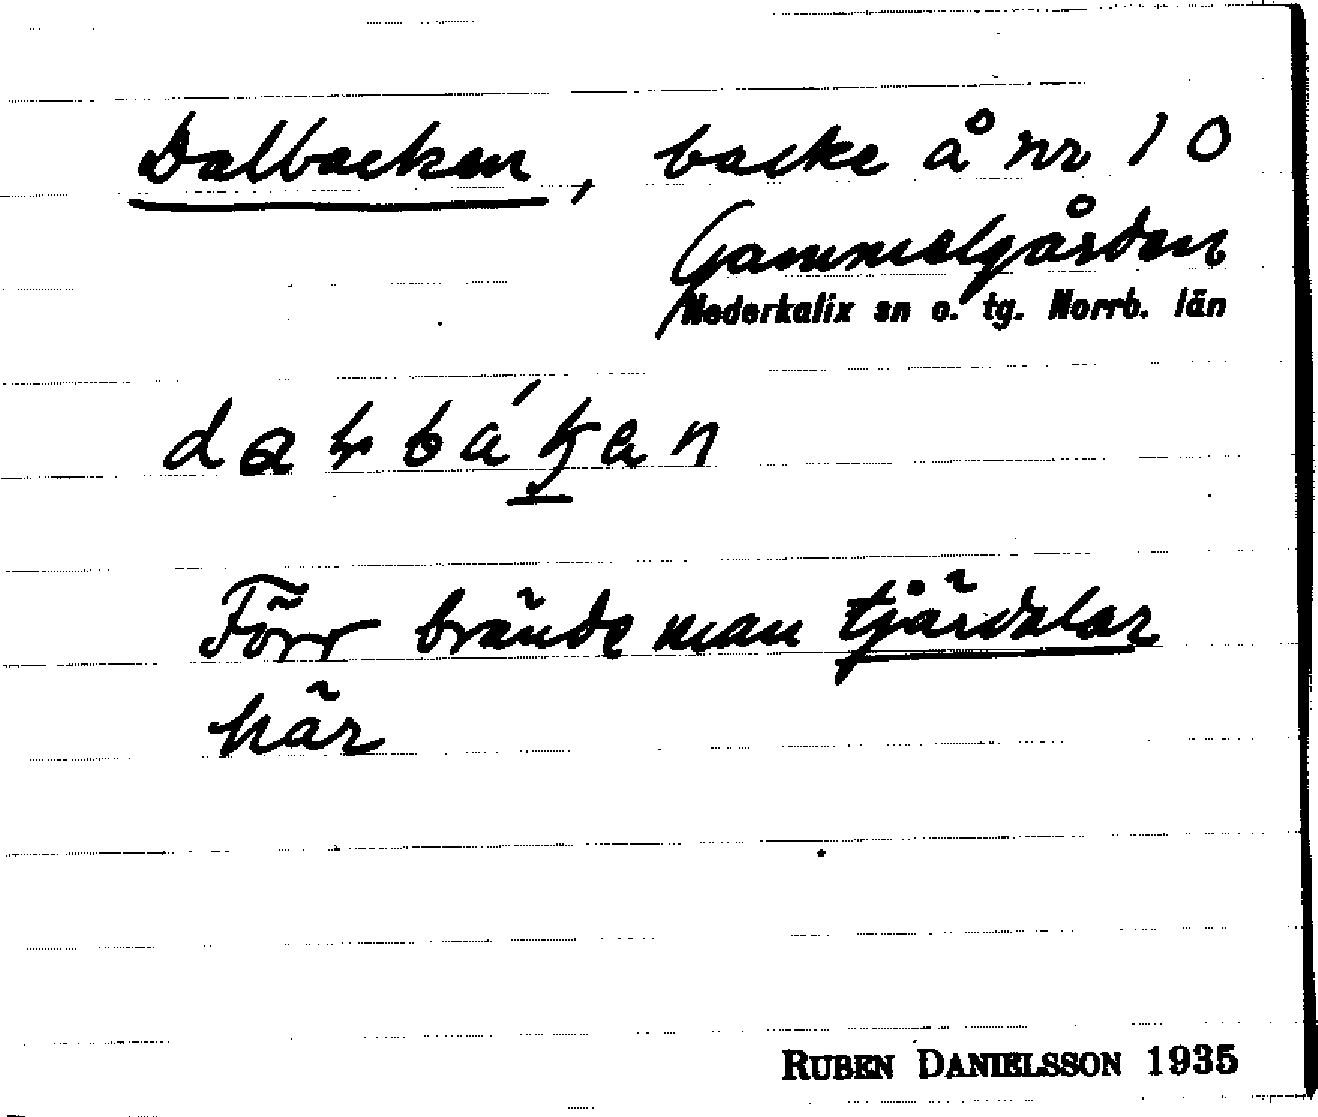 Dalbacken, backe å nr 10
Gammelgården
Nederkalix sn o. tg. Norrb. län
Förr brände man tjärdalar
här
RUBEN DANIELSSON 1935